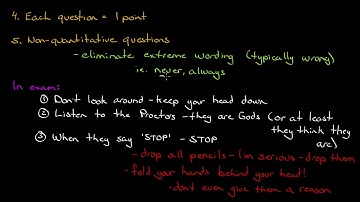 4. Each question = 1 point
5. Non-quantitative questions
- eliminate extreme wording (typically wrong)
ie. never, always
In exam:
① Don't look around - keep your head down
② Listen to the Proctors - they are Gods (or at least they think they are)
③ When they say 'STOP' - STOP
- drop all pencils - I'm serious - drop them
- fold your hands behind your head!
- don't even give them a reason